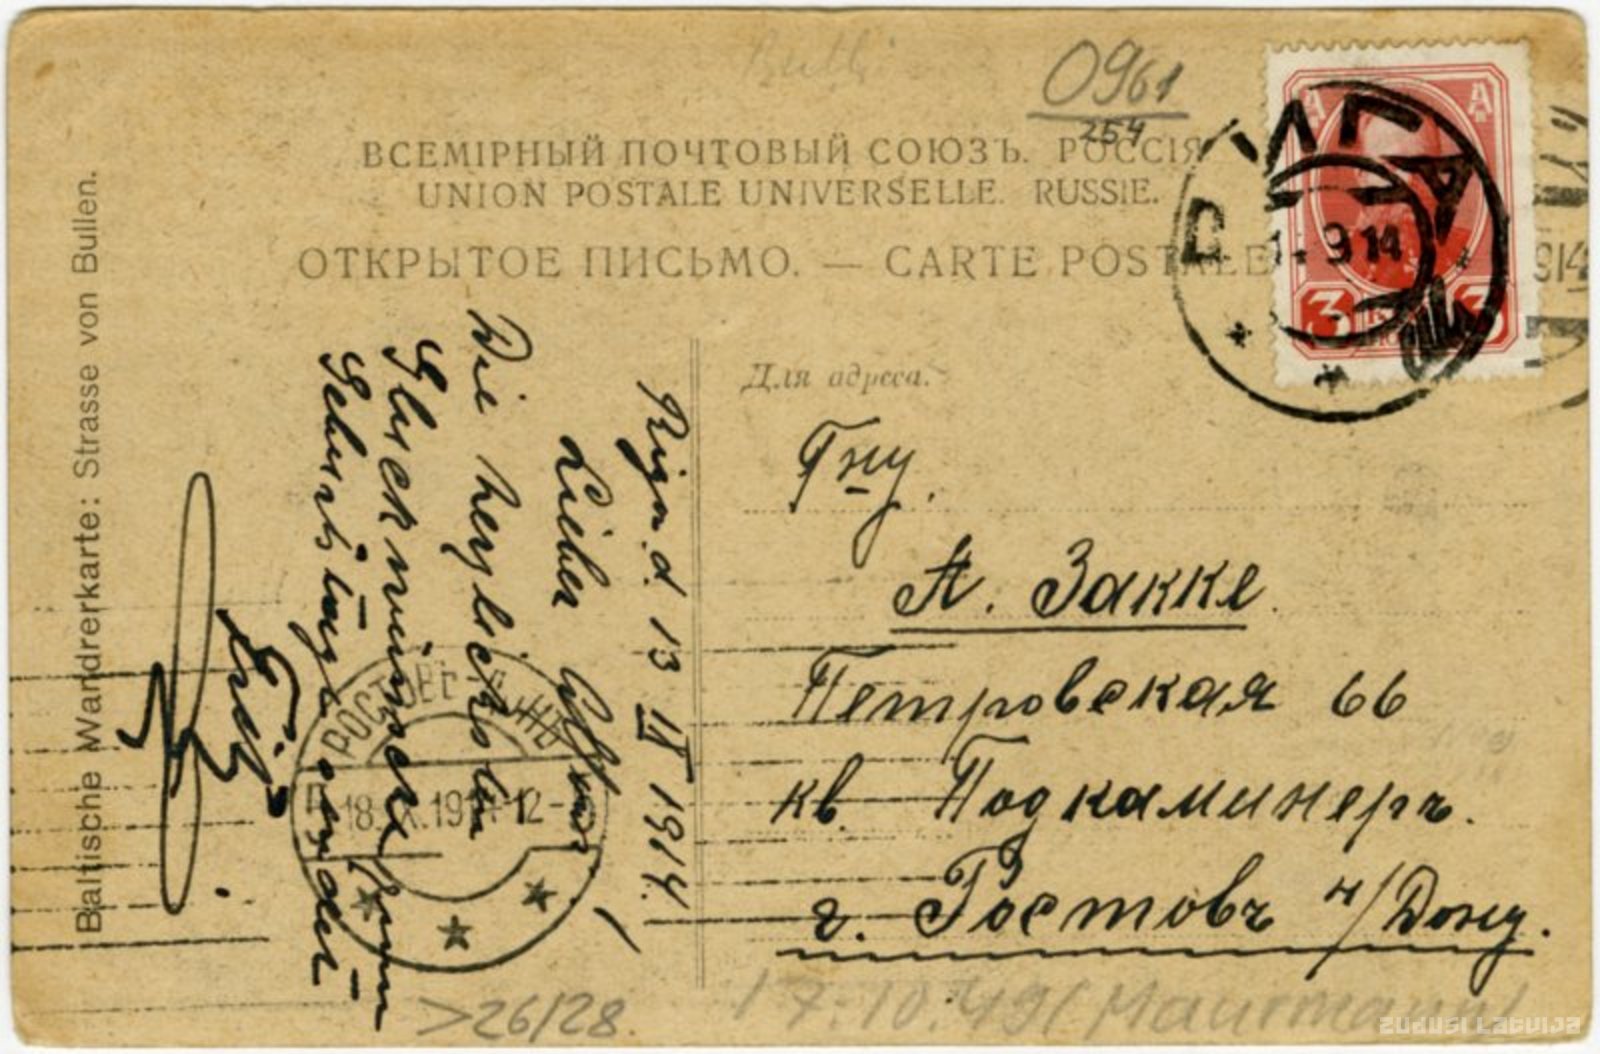 0961
254
ВСЕМІРНЫЙ ПОЧТОВЫЙ СОЮЗЪ. РОССІЯ
UNION POSTALE UNIVERSELLE. RUSSIE.
ОТКРЫТОЕ ПИСЬМО. — CARTE POSTALE
РИГА
1. 9 14
3 3
Для адреса.
Гну.
А. Закке.
Петровская 66
кв. Подкаминеръ.
г. Ростовъ н/Дону.
Riga d. 13 IX 1914.
Lieber
Die herzlichsten
Glückwünsche zum
Geburtstage sendet
Erich
РОСТОВЪ
18. IX. 1914-12
Baltische Wandrerkarte: Strasse von Bullen.
>26/28.
17.10.49
zudusi Latvija